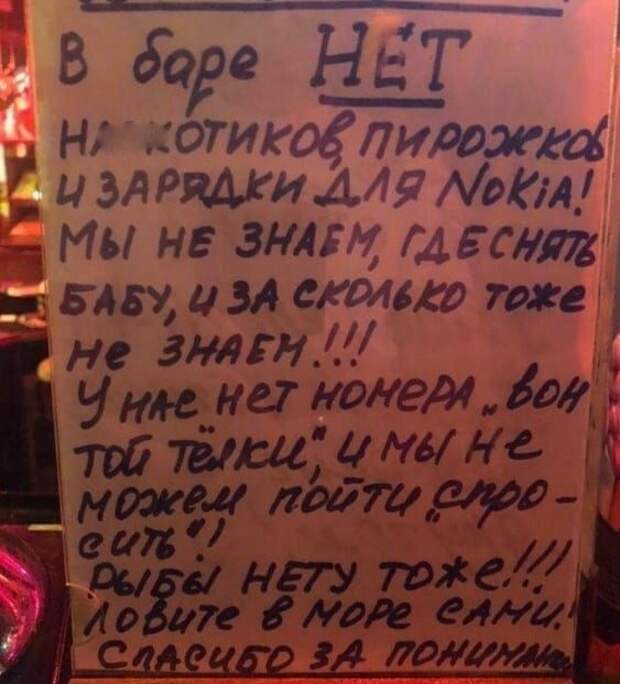 В баре НЕТ
пирожков
и зарядки для Nokia!
Мы не знаем, где снять
бабу, и за сколько тоже
не знаем!!!
У нас нет номера „вон
той тёлки“, и мы не
можем пойти „спро-
сить“!
Рыбы нету тоже!!!
Ловите в море сами!
Спасибо за